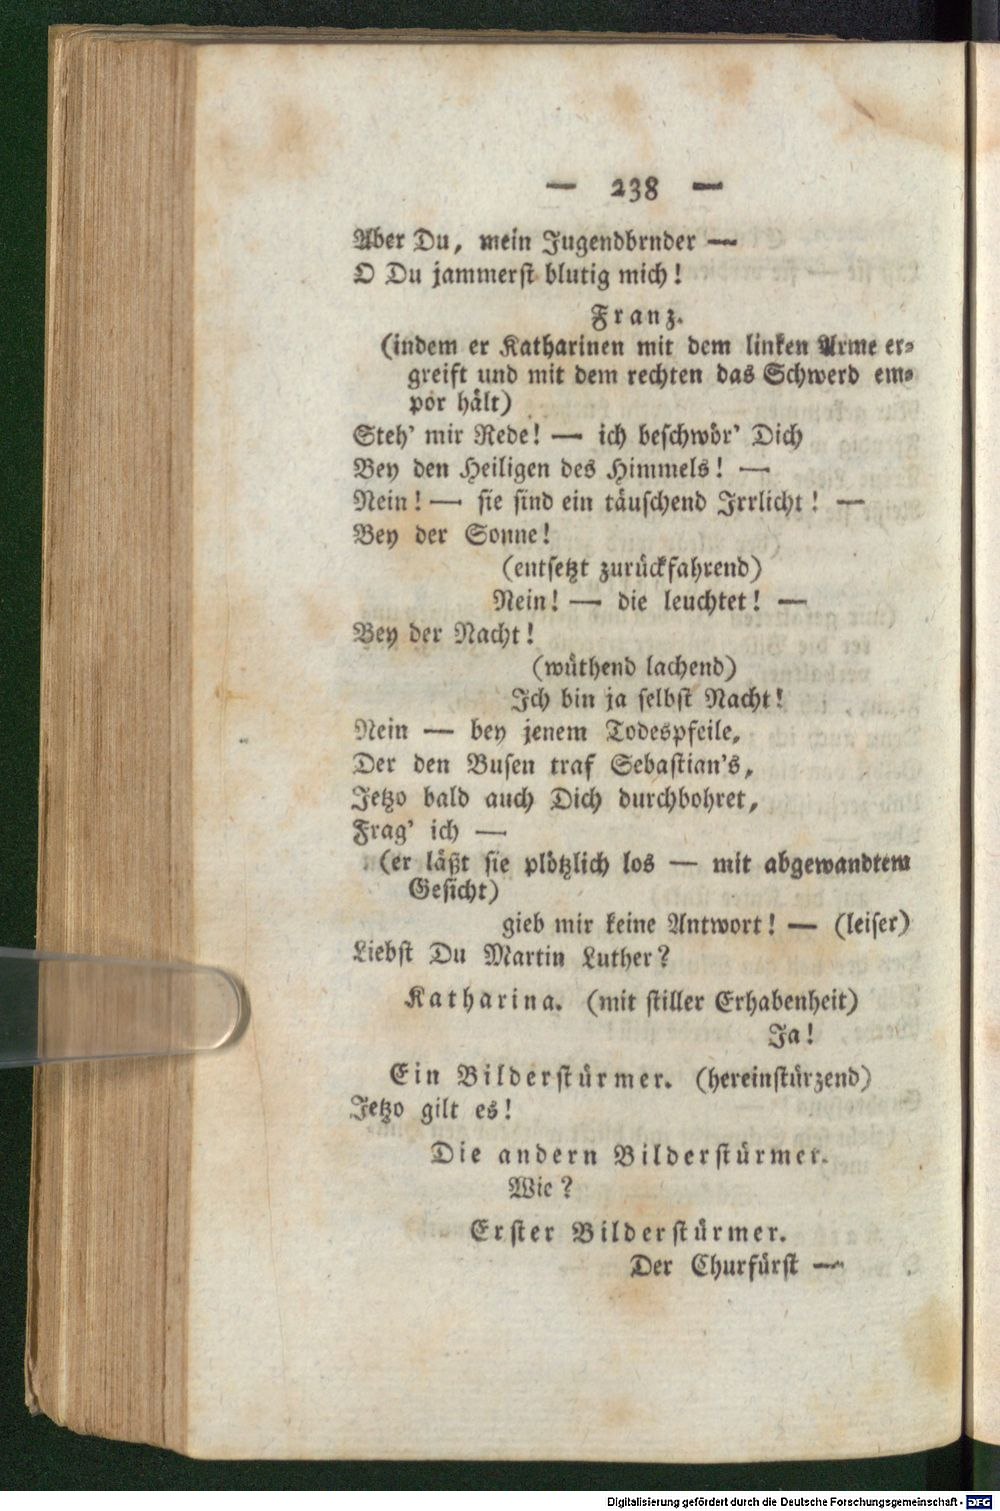 — 238 —
Aber Du, mein Jugendbrnder —
O Du jammerst blutig mich!
Franz.
(indem er Katharinen mit dem linken Arme er-
greift und mit dem rechten das Schwerd em-
por hält)
Steh' mir Rede! — ich beschwör' Dich
Bey den Heiligen des Himmels! —
Nein! — sie sind ein täuschend Irrlicht! —
Bey der Sonne!
(entsetzt zurückfahrend)
Nein! — die leuchtet! —
Bey der Nacht!
(wüthend lachend)
Ich bin ja selbst Nacht!
Nein — bey jenem Todespfeile,
Der den Busen traf Sebastian's,
Jetzo bald auch Dich durchbohret,
Frag' ich —
(er läßt sie plötzlich los — mit abgewandtem
Gesicht)
gieb mir keine Antwort! — (leiser)
Liebst Du Martin Luther?
Katharina. (mit stiller Erhabenheit)
Ja!
Ein Bilderstürmer. (hereinstürzend)
Jetzo gilt es!
Die andern Bilderstürmer.
Wie?
Erster Bilderstürmer.
Der Churfürst —
Digitalisierung gefördert durch die Deutsche Forschungsgemeinschaft - DFG